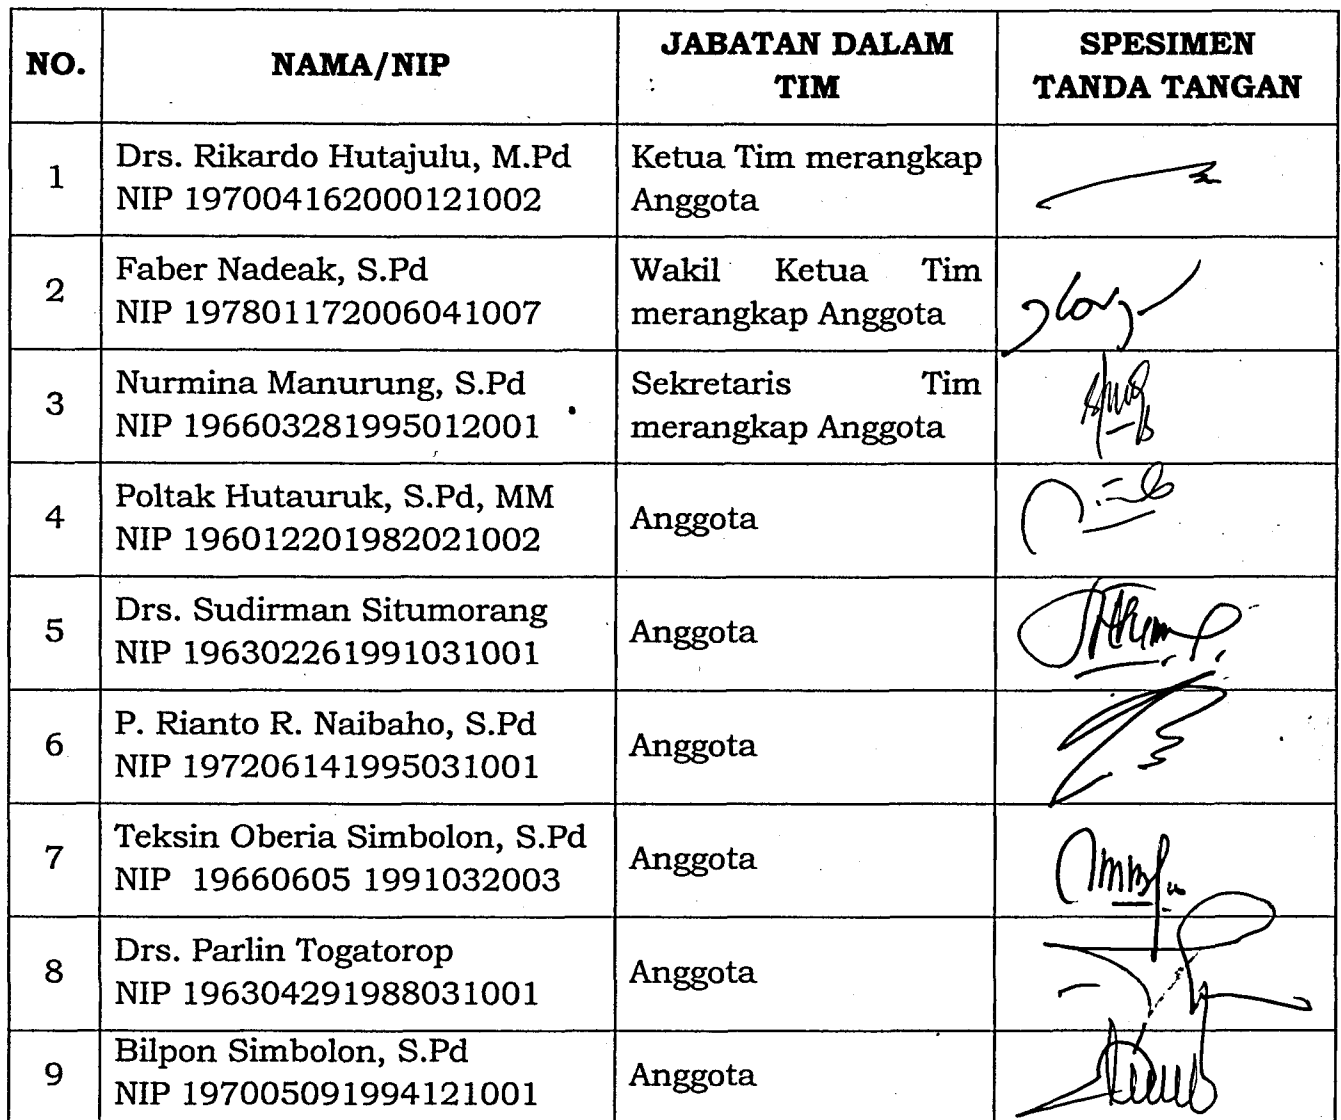 NO.
NAMA/NIP
JABATAN DALAM
TIM
SPESIMEN
TANDA TANGAN
1
Drs. Rikardo Hutajulu, M.Pd
NIP 197004162000121002
Ketua Tim merangkap
Anggota
2
Faber Nadeak, S.Pd
NIP 197801172006041007
Wakil Ketua Tim
merangkap Anggota
3
Nurmina Manurung, S.Pd
NIP 196603281995012001
Sekretaris Tim
merangkap Anggota
4
Poltak Hutauruk, S.Pd, MM
NIP 196012201982021002
Anggota
5
Drs. Sudirman Situmorang
NIP 196302261991031001
Anggota
6
P. Rianto R. Naibaho, S.Pd
NIP 197206141995031001
Anggota
7
Teksin Oberia Simbolon, S.Pd
NIP 19660605 1991032003
Anggota
8
Drs. Parlin Togatorop
NIP 196304291988031001
Anggota
9
Bilpon Simbolon, S.Pd
NIP 197005091994121001
Anggota